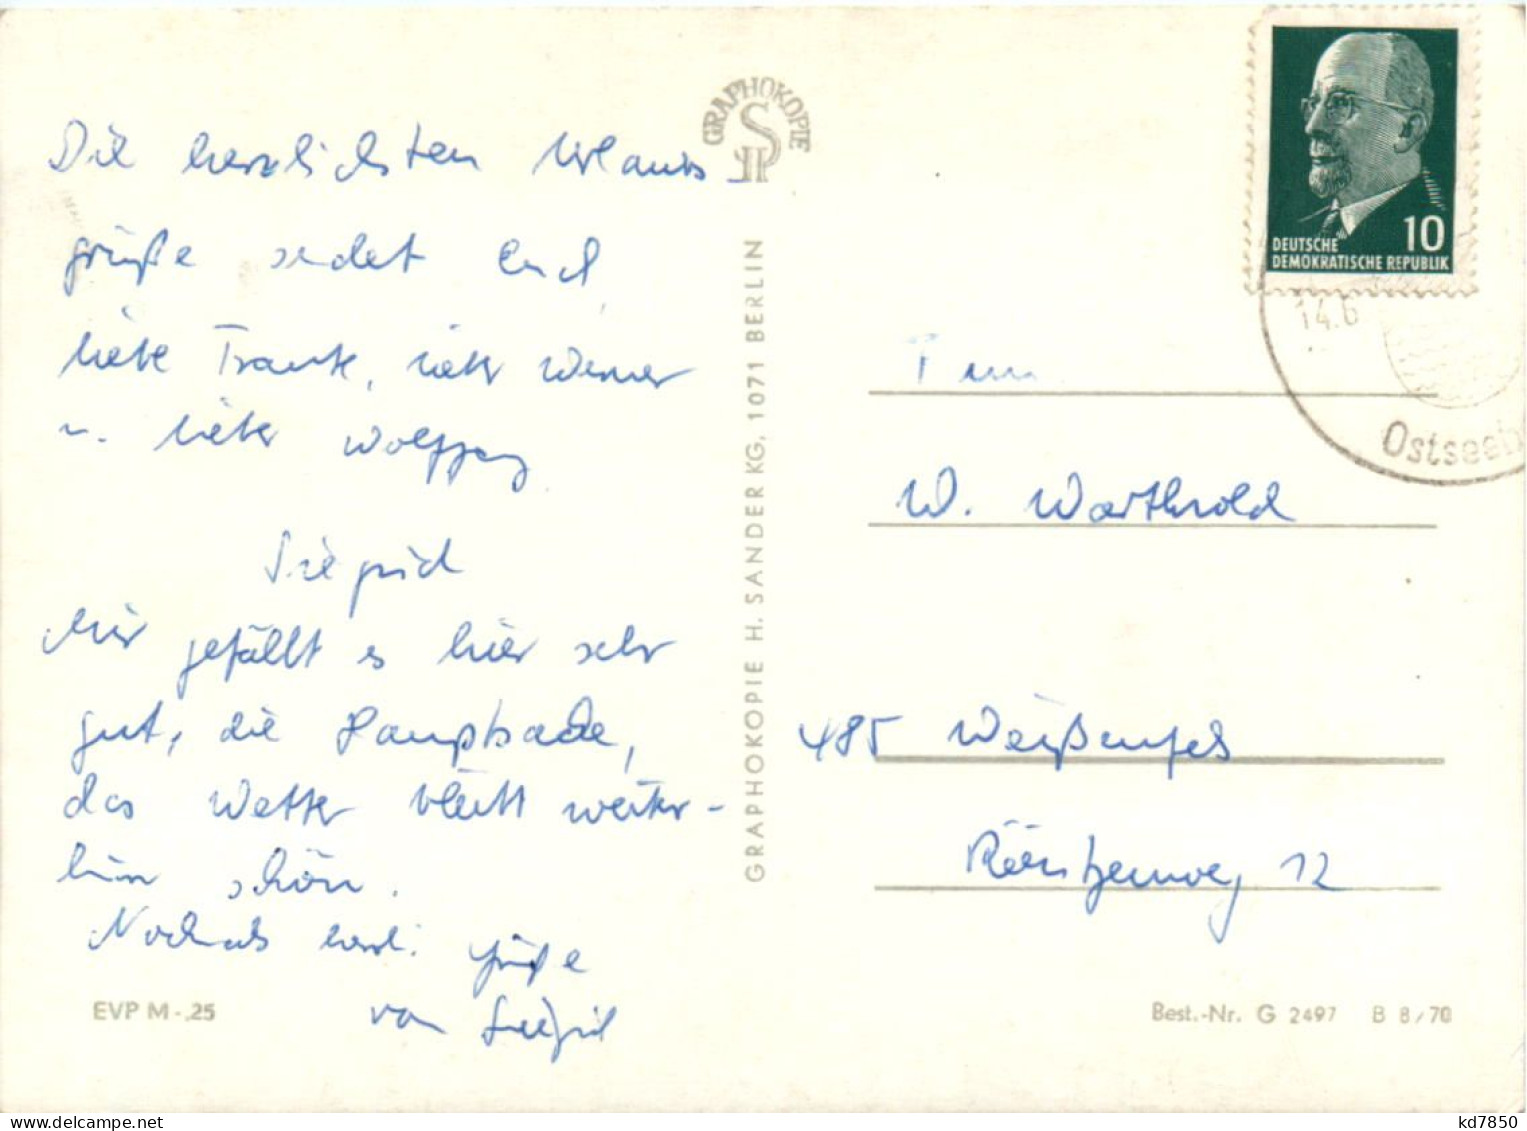 Die herzlichsten Urlaubs-
grüße sendet Euch,
liebe Traute, lieber Werner
u. lieber Wolfgang
Mir gefällt es hier sehr
gut, die Hauptsache,
das Wetter bleibt weiter-
hin schön.
Nochmals herzl. Grüße
von
EVP M -.25
GRAPHOKOPIE
HS
GRAPHOKOPIE H. SANDER KG, 1071 BERLIN
10
DEUTSCHE
DEMOKRATISCHE REPUBLIK
14.6
Ostseeb
Fam
W. Warthold
485 Weißenfels
12
Best.-Nr. G 2497 B 8/70
kd7850